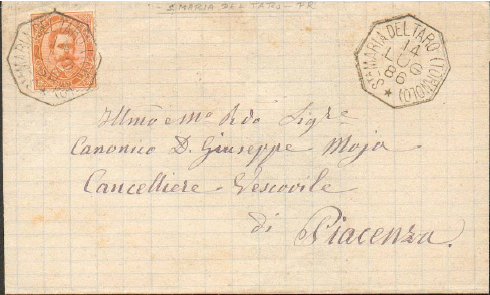 S. MARIA DEL TARO - PR
STA MARIA DEL TARO (TORNOLO)
14
LUG
86
Illmo e mo Rdo Sigre
Canonico D. Giuseppe Moja
Cancelliere Vescovile
di Piacenza.